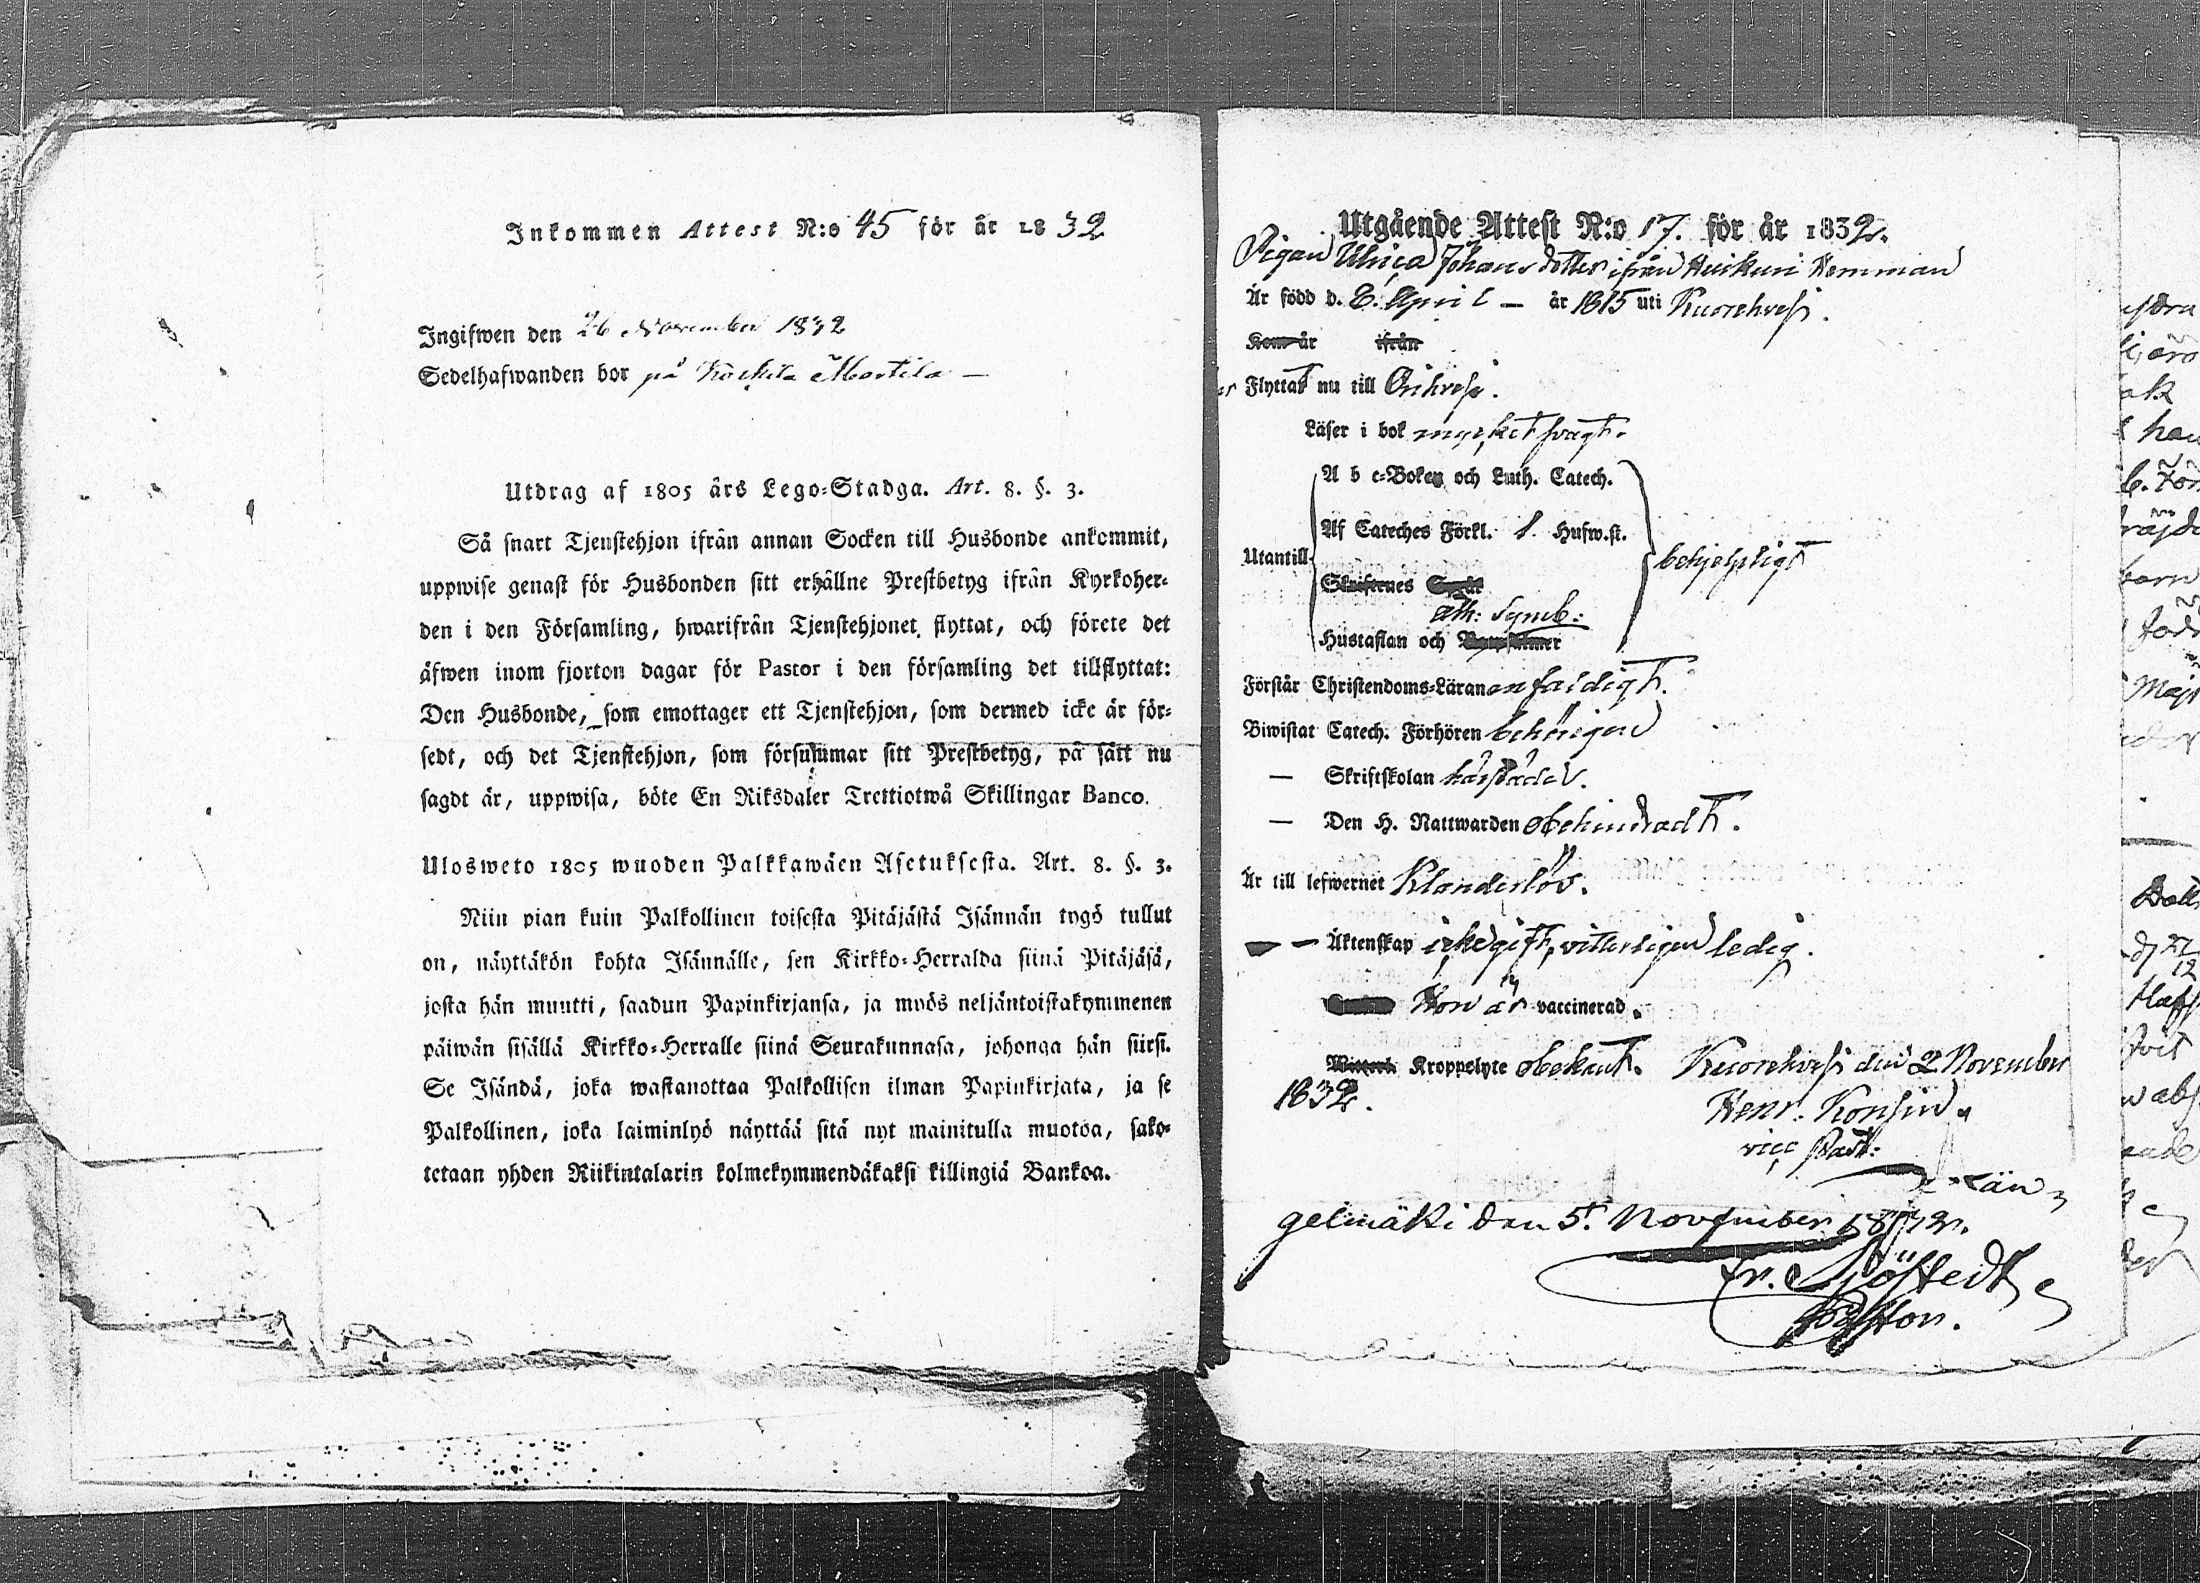 Inkommen Attest N:o 45 för år 1832
Ingifwen den 26 November 1832
Sedelhafwanden bor på Martila
Utdrag af 1805 års Lego-Stadga. Art. 8. §. 3.
Så snart Tjenstehjon ifrån annan Socken till Husbonde ankommit,
uppwise genast för Husbonden sitt erhållne Prestbetyg ifrån Kyrkoher-
den i den Församling, hwarifrån Tjenstehjonet flyttat, och förete det
äfwen inom fjorton dagar för Pastor i den församling det tillflyttat:
Den Husbonde, som emottager ett Tjenstehjon, som dermed icke är för-
sedt, och det Tjenstehjon, som försummar sitt Prestbetyg, på sätt nu
sagdt är, uppwisa, böte En Riksdaler Trettiotwå Skillingar Banco.
Ulosweto 1805 wuoden Palkkawäen Asetuksesta. Art. 8. §. 3.
Niin pian kuin Palkollinen toisesta Pitäjästä Isännän tygö tullut
on, näyttäkön kohta Isännälle, sen Kirkko-Herralda siinä Pitäjäsä,
josta hän muutti, saadun Papinkirjansa, ja myös neljäntoistakymmenen
päiwän sisällä Kirkko-Herralle siinä Seurakunnasa, johonga hän siirsi.
Se Isändä, joka wastanottaa Palkollisen ilman Papinkirjata, ja se
Palkollinen, joka laiminlyö näyttää sitä nyt mainitulla muotoa, sako-
tetaan yhden Riikintalarin kolmekymmendäkaksi killingiä Bankoa.
Utgående Attest N:o 17. för år 1832.
Pigan Ulrica Johans dotter ifrån Huikuri Hemman
Är född d. 8. April — år 1815 uti Kuorehvesi.
Kom år ifrån
Flyttat nu till Orihvesi.
Läser i bok mycket svagt.
A b c-Boken och Luth. Catech.
Af Cateches Förkl. l. Husw.st.
Utantill behjelpligt
Skrifternes Språk
Ath: Symb:
Hustaflan och
Förstår Christendoms-Läran enfaldigt.
Biwistat Catech. Förhören behörigen
— Skriftskolan härstädes.
— Den H. Nattwarden obehindradt.
Är till lefwernet Klanderlös.
— Äktenskap icke gift, vitterligen ledig.
Hon är vaccinerad.
Kroppslyte obekant. Kuorehvesi den 2 November
1832.
Henr. Konsin
vice Past:
Län
gelmäki den 5. November 1832.
Fr. Sjöstedt
Pastor.